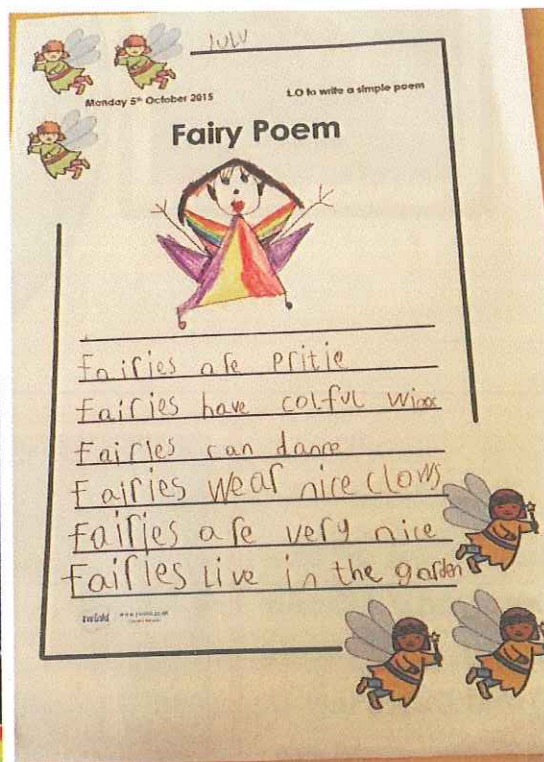 JULU
Monday 5th October 2015
LO to write a simple poem
Fairy Poem
Fairies are pritie
Fairies have colful wings
Fairies can dance
Fairies wear nice clows
Fairies are very nice
Fairies live in the garden
twinkl